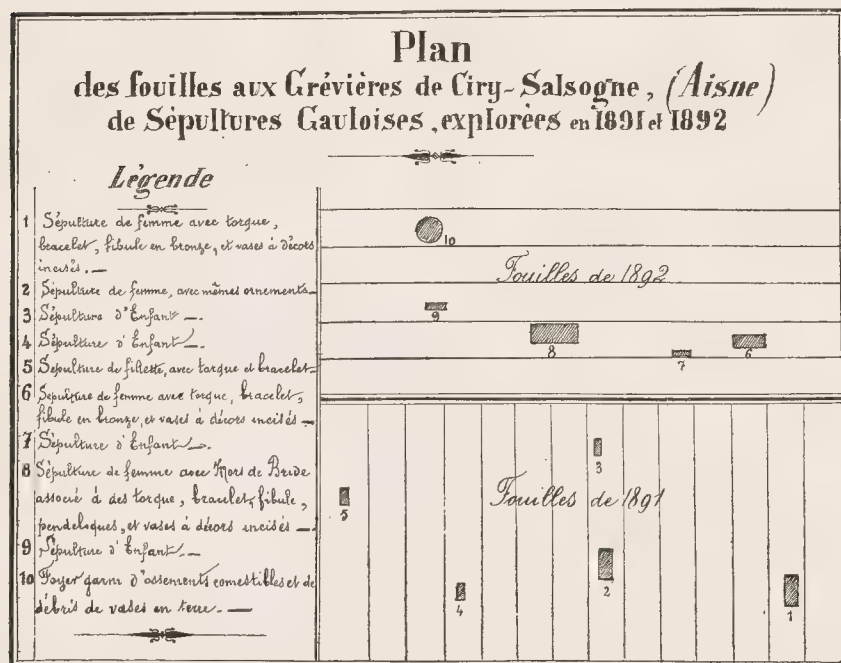 Plan
des fouilles aux Grévières de Ciry-Salsogne, (Aisne)
de Sépultures Gauloises, explorées en 1891 et 1892
Légende
1 Sépulture de femme avec torque,
bracelet, fibule en bronze, et vases à décors
incisés. —
2 Sépulture de femme, avec mêmes ornements —
3 Sépulture d'Enfant —.
4 Sépulture d'Enfant —.
5 Sépulture de fillette, avec torque et bracelet —
6 Sépulture de femme avec torque, bracelet,
fibule en bronze, et vases à décors incisés —
7 Sépulture d'Enfant —.
8 Sépulture de femme avec Mors de Bride
associé à des torque, bracelet, fibule,
pendeloques, et vases à décors incisés —
9 Sépulture d'Enfant. —
10 Foyer garni d'ossements comestibles et de
débris de vases en terre. —
10
Fouilles de 1892
9
8
7
6
3
Fouilles de 1891
5
4
2
1